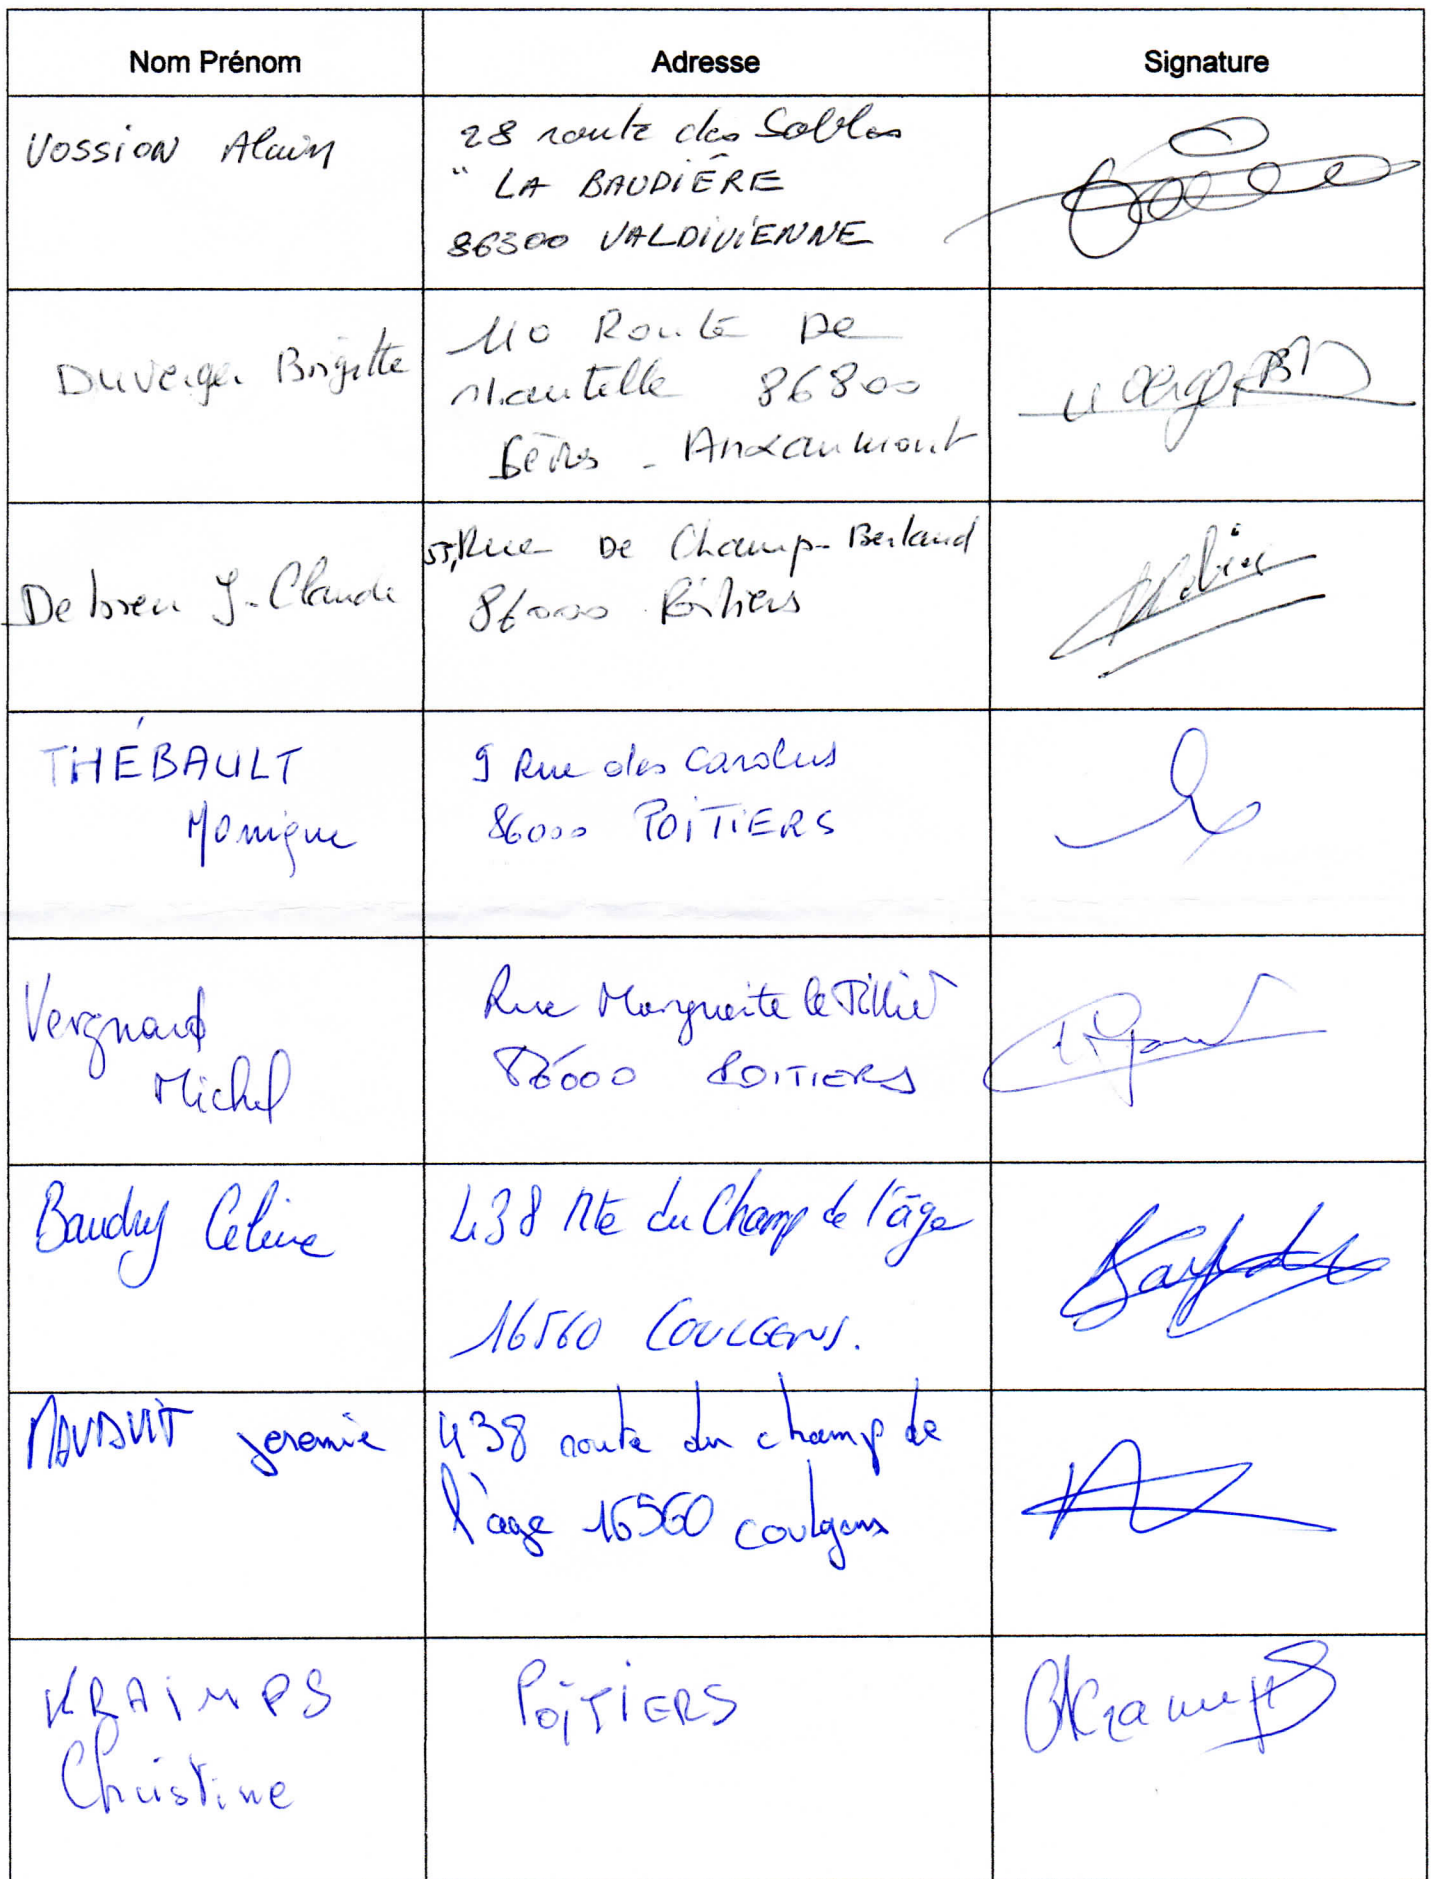 Nom Prénom Adresse Signature
VOSSION Alain
28 route des Sables
" LA BAUDIÈRE
86300 VALDIVIENNE
Duverger Brigitte
110 Route De
86800
Sèvres - Anxaumont
J-Claude
55, Rue De Champ-Berland
86000 Poitiers
THÉBAULT
Monique
9 Rue des Carolus
86000 POITIERS
Vergnaud
Michel
Rue Marguerite le Tillier
86000 POITIERS
Baudry Céline
438 Rte du Champ de l'âge
16560 COULGENS.
jeremie
438 route du champ de
l'age 16560 coulgens
KRAIMPS
Christine
POITIERS